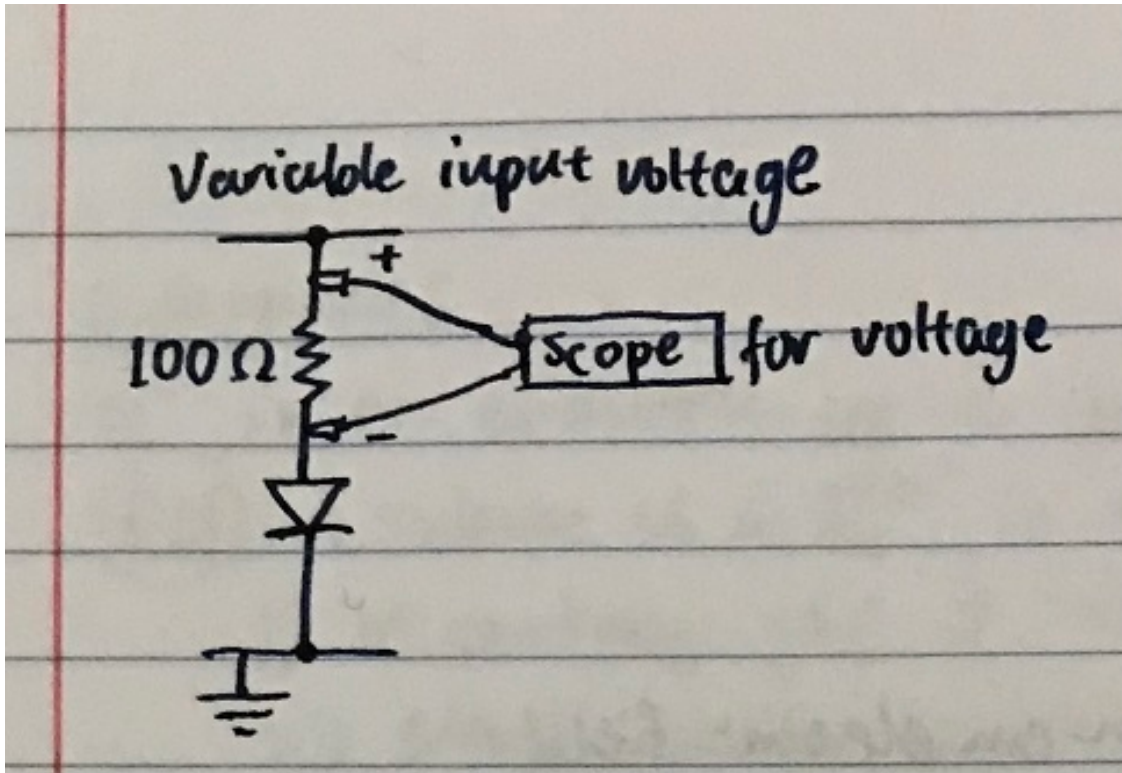 Variable input voltage
+
100Ω
scope for voltage
-